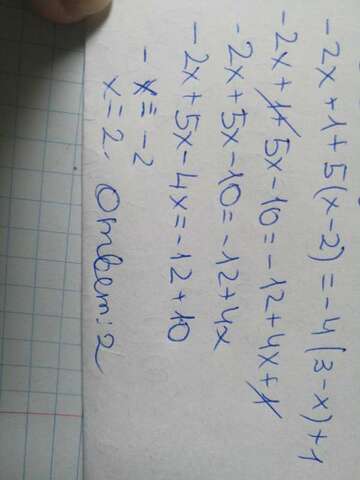 -2x+1+5(x-2)=-4(3-x)+1
-2x+1+5x-10=-12+4x+1
-2x+5x-10=-12+4x
-2x+5x-4x=-12+10
-x=-2
x=2. Ответ: 2